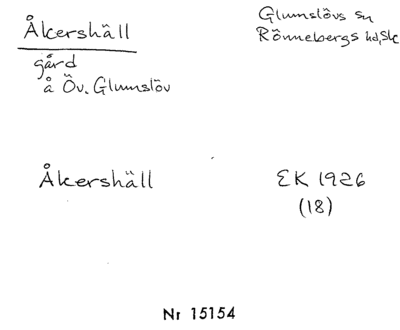 Åkershäll
Glumslövs sn
Rönnebergs hd, Sk
gård
å Öv. Glumslöv
Åkershäll
EK 1926
(18)
Nr 15154